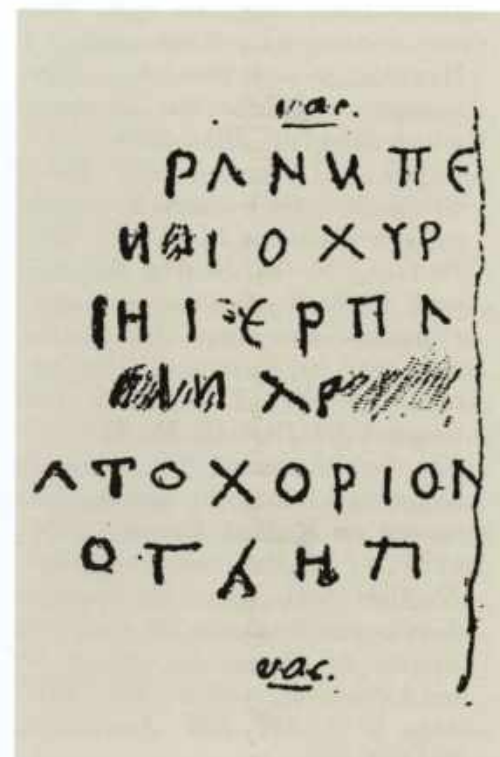 vac.
ΡΛΝИΠΕ
ИΘΙΟΧΥΡ
ΙΗΙΕΡΠΛ
ΧΡ
ΛΤΟΧΟΡΙΟΝ
ΟΤΔΗΠ
vac.